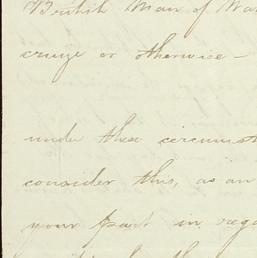 British Man of War
cruize or otherwise –
under these circumst
consider this, as an
your part in rega